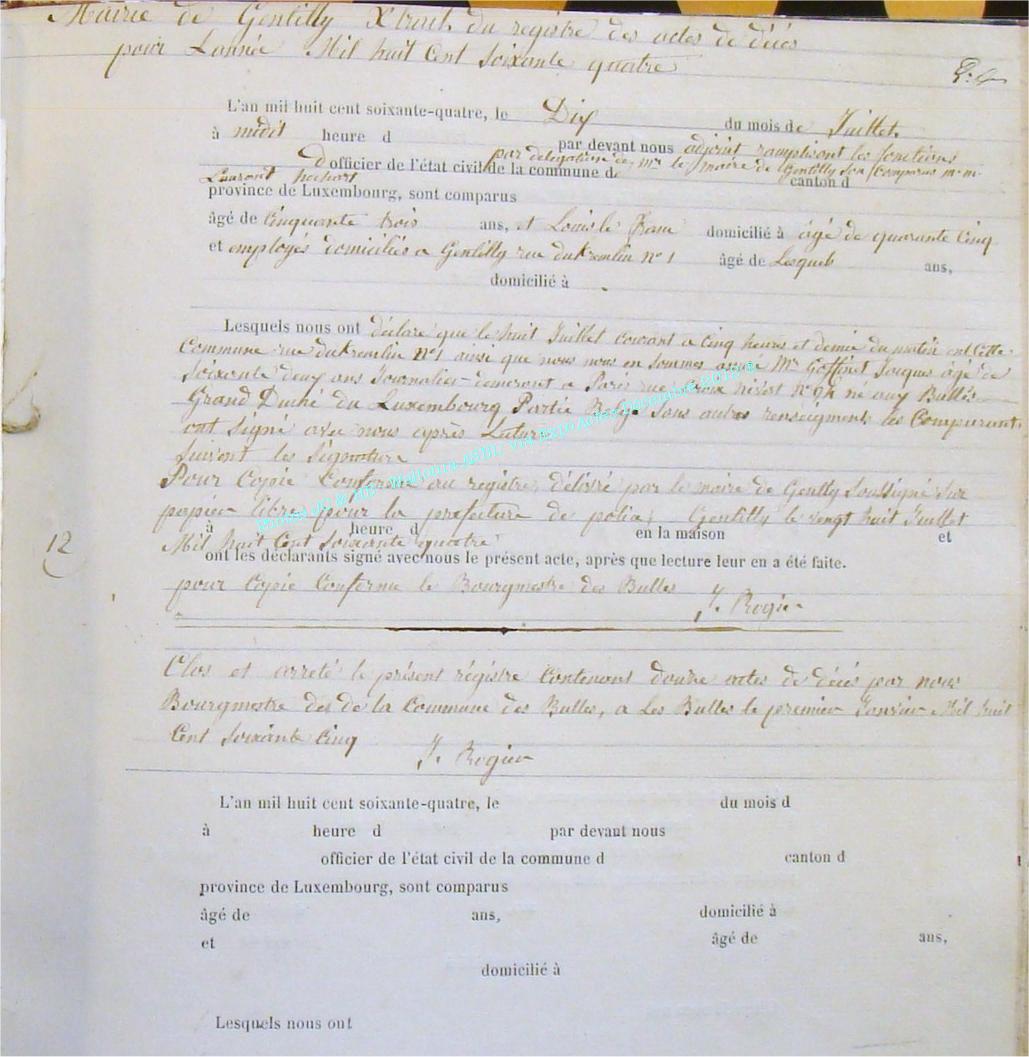 Mairie de Gentilly Xtrait du registre des actes de décés
pour Lannée Mil huit Cent Soixante quatre
L'an mil huit cent soixante-quatre, le Dix du mois de Juillet
à midit heure d par devant nous adjoint ramplisont les fonctions
D officier de l'état civil de la commune d par délégation de Mr le maire de Gentilly canton d
Laurent
province de Luxembourg, sont comparus
âgé de Cinquante trois ans, et Louis le domicilié à âgé de quarante Cinq
et employés domiciliés a Gentilly rue du Kremlin n° 1 âgé de Lesquels ans,
domicilié à
Lesquels nous ont déclare que le huit Juillet Courant a Cinq heures et demie du matin en Cette
Commune rue du Kremlin N°1 ainsi que nous nous en sommes assuré Mr Goffinet Jacques âgé de
Soixante deux ans Journalier demeront a Paris rue N° 94 né aux Bulles
Grand Duché du Luxembourg Partie Belge Sans autres renseignments les Comparants
ont Signé avec nous après Lecture
Suivent les Signature
Pour Copie Conforme au registre, délivré par le maire de Gentlly Soussigné Sur
papier libre pour la prefecture de police, Gentilly le vengt huit Juillet
à heure d en la maison et
Mil huit Cent Soixante quatre
12
ont les déclarants signé avec nous le présent acte, après que lecture leur en a été faite.
pour Copie Conforme le Bourgmestre des Bulles
J. Rogier
Clos et arreté le présent régistre Contenant douze actes de décés par nous
Bourgmestre des de la Commune des Bulles, a Les Bulles le premier Janvier Mil huit
Cent Soixante Cinq J. Rogier
L'an mil huit cent soixante-quatre, le du mois d
à heure d par devant nous
officier de l'état civil de la commune d canton d
province de Luxembourg, sont comparus
âgé de ans, domicilié à
et âgé de ans,
domicilié à
Lesquels nous ont